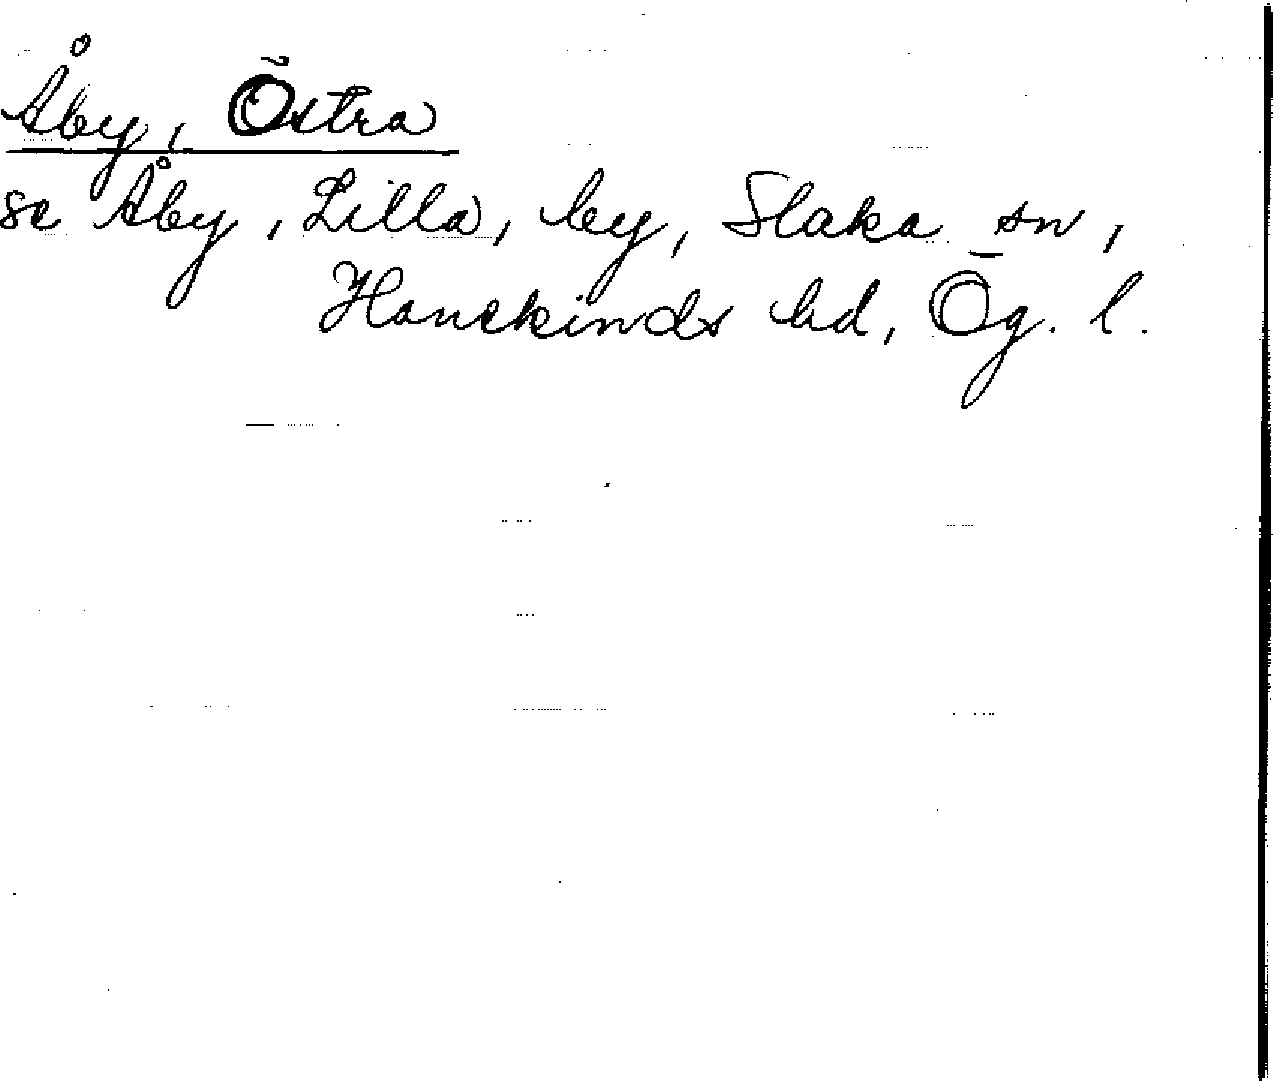 Åby, Östra
se Åby, Lilla, by, Slaka sn,
Hanekinds hd, Ög. l.